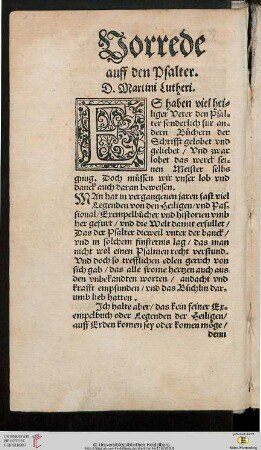 Vorrede
auff den Psalter.
D. Martini Lutheri.
ES haben viel hei-
liger Veter den Psal-
ter sonderlich fur an-
dern Büchern der
Schrifft gelobet vnd
geliebet / Vnd zwar
lobet das werck sei-
nen Meister selbs
gnug. Doch müssen wir vnser lob vnd
danck auch daran beweisen.
MAn hat in vergangenen jaren fast viel
Legenden von den Heiligen / vnd Pas-
sional / Exempelbücher vnd historien vmb
her gefurt / vnd die Welt damit erfüllet /
Das der Psalter dieweil vnter der banck /
vnd in solchem finsternis lag / das man
nicht wol einen Psalmen recht verstund.
Vnd doch so trefflichen edlen geruch von
sich gab / das alle frome hertzen auch aus
den vnbekandten worten / andacht vnd
krafft empfunden / vnd das Büchlin dar-
umb lieb hatten.
Ich halte aber / das kein feiner Ex-
empelbuch oder Legenden der Heiligen /
auff Erden komen sey oder komen möge /
denn
Universitätsbibliothek Heidelberg